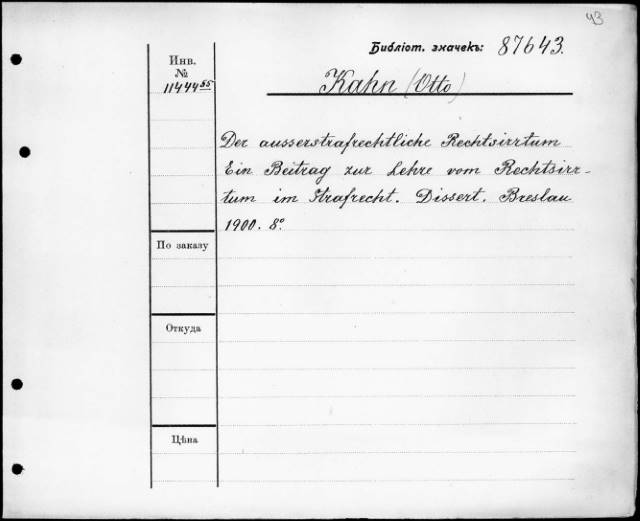 43
Библіот. значекъ: 87643.
Инв.
№
11444 55
Kahn (Otto)
Der ausserstrafrechtliche Rechtsirrtum
Ein Beitrag zur Lehre vom Rechtsirr-
tum im Strafrecht. Dissert. Breslau
1900. 8°.
По заказу
Откуда
Цѣна